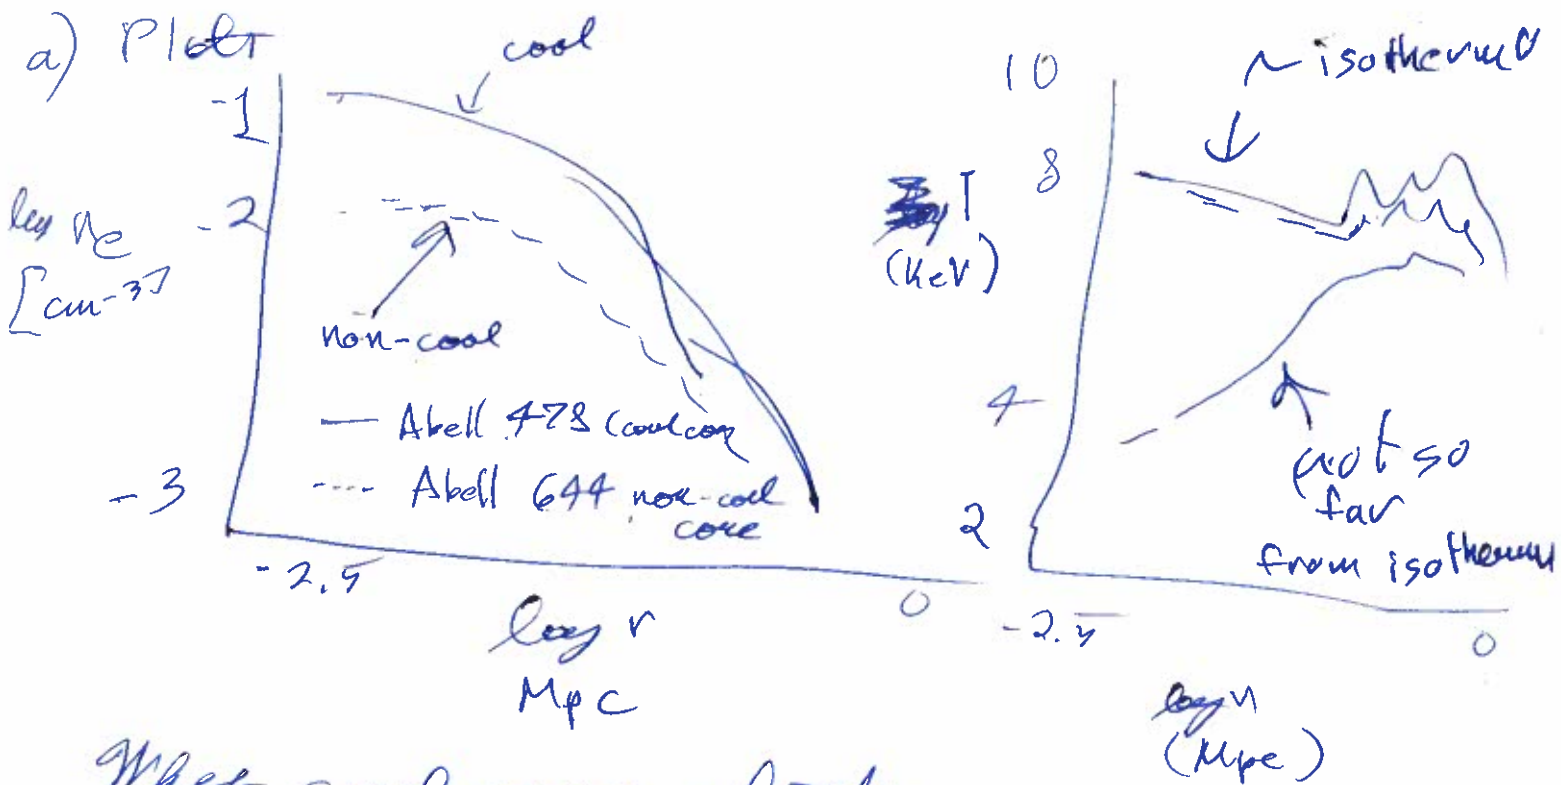 a) Plots
cool
-1
log ne
[cm-3]
-2
non-cool
— Abell 478 (cool core
---- Abell 644 non-cool
core
-3
-2.5
0
log r
Mpc
10
~ isothermal
8
T
(KeV)
4
not so
far
from isotherm
2
-2.5
0
log r
(Mpc)